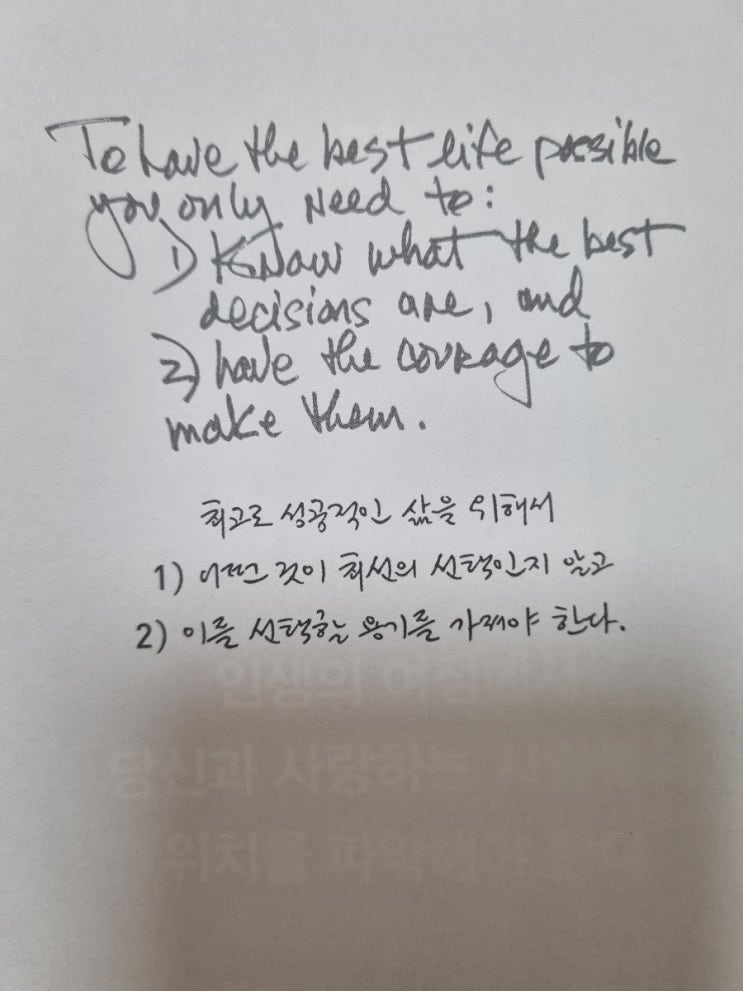 To have the best life possible
you only need to:
1) Know what the best
decisions are, and
2) have the courage to
make them.
최고로 성공적인 삶을 위해서
1) 어떤 것이 최선의 선택인지 알고
2) 이를 선택하는 용기를 가져야 한다.
인생의 여정에서
당신과 사랑하는
위치를 파악해야 한다